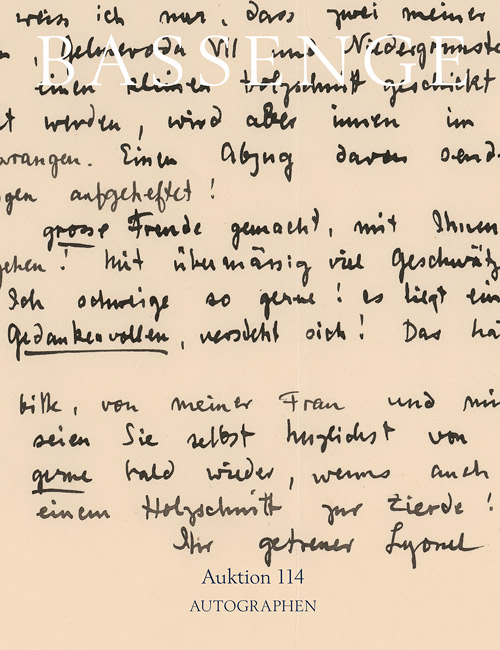 weis ich nur, dass zwei meiner
BASSENGE
, Dobrovoda VII und Niedergrunste
einen kleinen Holzschnitt geschickt
t werden, wird aber innen im
prangen. Einen Abzug davon send-
gen aufgeheftet!
grosse Freude gemacht, mit Ihnen
gehen! Mit übermässig viel Geschwätz
Ich schweige so gerne! es liegt ein
Gedankenvollen, versteht sich! Das hä
bitte, von meiner Frau und mir
seien Sie selbst herzlichst von
gerne bald wieder, wenns auch
einem Holzschnitt zur Zierde!
Ihr getreuer Lyonel
Auktion 114
AUTOGRAPHEN